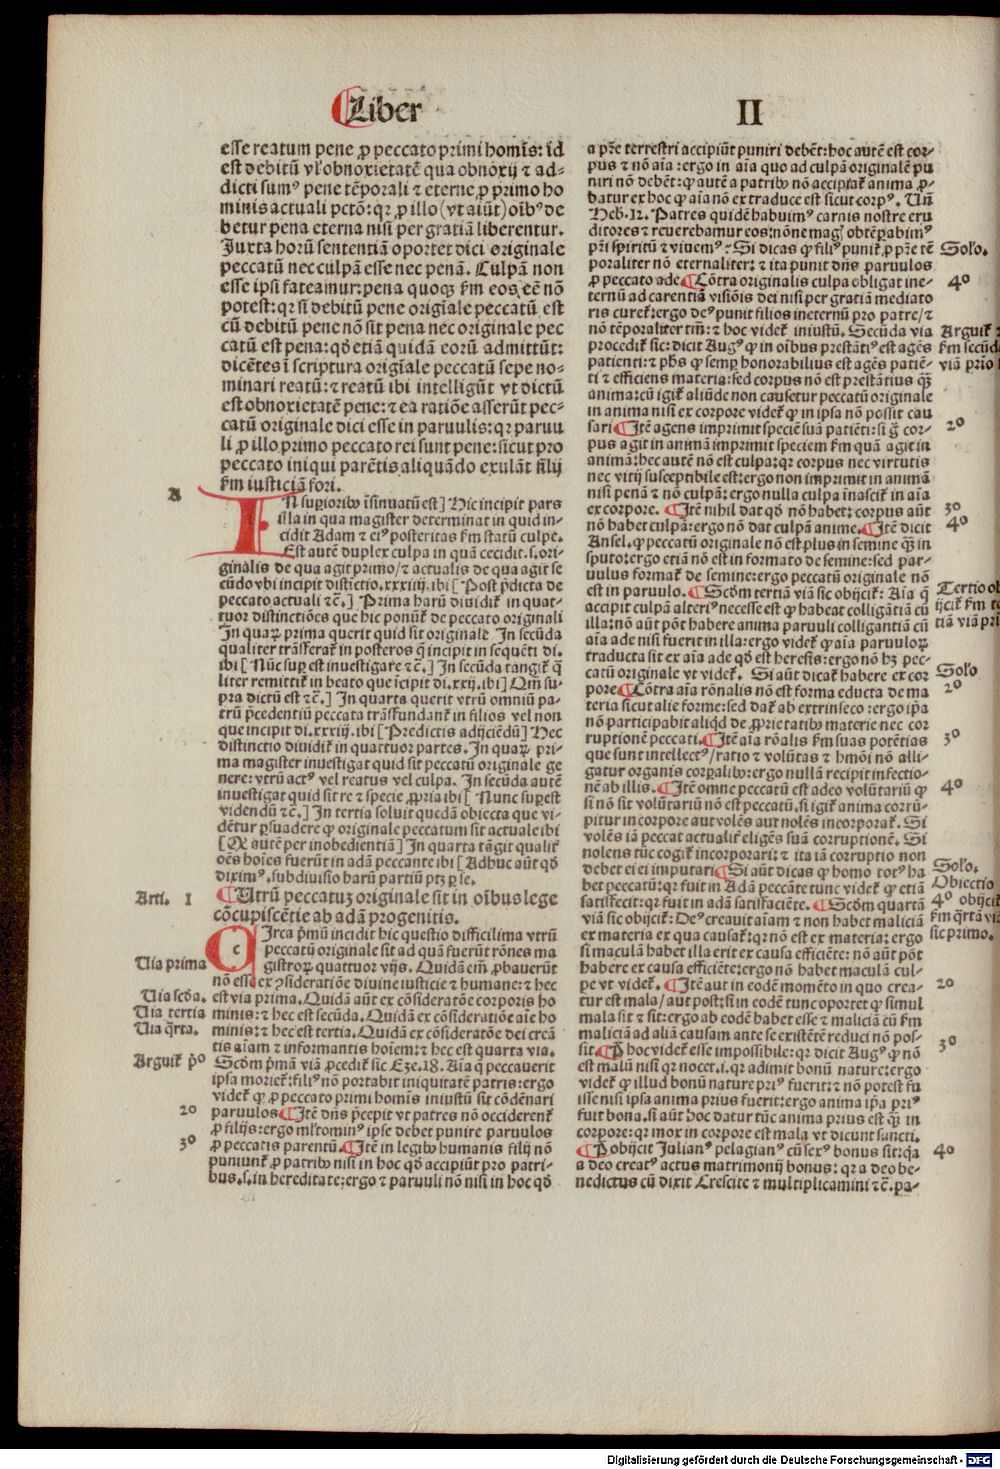 Liber II
esse reatum pene ꝓ peccato primi homīs: id
est debitū vł obnoxietatē qua obnoxij ⁊ ad-
dicti sumꝰ pene tēporali ⁊ eterne ꝓ primo ho
minis actuali pctō: qꝛ ꝓ illo (vt aiūt) oībꝰ de
betur pena eterna nisi per gratiā liberentur.
Juxta horū sententiā oportet dici originale
peccatū nec culpā esse nec penā. Culpā non
esse ipsi fatentur: pena quoqꝫ ẜm eos eē nō
potest: qꝛ si debitū pene origīale peccatū est
cū debitū pene nō sit pena nec originale pec
catū est pena: qđ etiā quidā eorū admittūt:
dicētes ī scriptura origīale peccatū sepe no-
minari reatū: ⁊ reatū ibi intelligūt vt dictū
est obnoxietatē pene: ⁊ ea ratiōe asserūt pec-
catū originale dici esse in paruulis: qꝛ paruu
li ꝓ illo primo peccato rei sunt pene: sicut pro
peccato iniqui parētis aliquādo exulāt filij
ẜm iusticiā fori.
A
IN superioribꝰ īsinuatū est] Hic incipit pars
illa in qua magister determinat in quid in-
cidit Adam ⁊ eiꝰ posteritas ẜm statū culpe.
Est autē duplex culpa in quā cecidit. s. ori-
ginalis de qua agit primo/ ⁊ actualis de qua agit se
cūdo vbi incipit distīctio. xxxiiij. ibi [Post p̄dicta de
peccato actuali ⁊c̄.] Prima harū diuidit̄ in quat-
tuor distinctiōes que hic ponūt̄ de peccato originali
In quaꝝ prima querit quid sit originale. In secūda
qualiter trāsferat̄ in posteros q̄ incipit in sequēti di.
ibi [Nūc suꝑ est inuestigare ⁊c̄.] In secūda tangit̄ q̄
liter remittit̄ in beato que īcipit di. xxij. ibi] Qm̄ su-
pra dictū est ⁊c̄.] In quarta querit vtrū omniū pa-
trū p̄cedentiū peccata trāsfundant̄ in filios vel non
que incipit di. xxxiij. ibi [Predictis adijciēdū] Hec
distinctio diuidit̄ in quattuor partes. In quaꝝ pri-
ma magister inuestigat quid sit peccatū originale ge
nere: vtrū actꝰ vel reatus vel culpa. In secūda autē
inuestigat quid sit re ⁊ specie ꝓpria ibi [Nunc suꝑest
videndū ⁊c̄.] In tertia soluit quedā obiecta que vi-
dētur ꝑsuadere ꝙ originale peccatum sit actuale ibi
[Qđ autē per inobedientiā] In quarta tāgit qualit̄
oēs hoīes fuerūt in adā peccante ibi [Adhuc aūt qđ
diximꝰ. subdiuisio harū partiū ptꝫ ꝑ se.
Arti. I
Utrū peccatuꝫ originale sit in oībus lege
cōcupiscētie ab adā progenitis.
CIrca p̄mū incidit hic questio difficilima vtrū
peccatū originale sit ad quā fuerūt rōnes ma
Uia prima
gistroꝝ quattuor vijs. Quidā em̄ ꝓbauerūt
nō esse ex ꝯsideratiōe diuine iusticie ⁊ humane: ⁊ hec
Uia scđa.
est via prima. Quidā aūt ex cōsideratōe corporis ho
Uia tertia
minis: ⁊ hec est secūda. Quidā ex cōsideratiōe aīe ho
Uia q̄rta.
minis: ⁊ hec est tertia. Quidā ex cōsideratōe dei creā
tis aīam ⁊ informantis hoīem: ⁊ hec est quarta via.
Arguit̄ p̄º
Scđm p̄mā viā ꝓcedit̄ sic Eze. 18. Aīa q̄ peccauerit
ipsa moriet̄: filiꝰ nō portabit iniquitatē patris: ergo
videt̄ ꝙ ꝓ peccato primi homīs iniustū sit cōdēnari
2º
paruulos ¶ Itē dn̄s p̄cepit vt patres nō occiderent̄
ꝓ filijs: ergo ml̄tominꝰ ipse debet punire paruulos
3º
ꝓ peccatis parentū. ¶ Itē in legibꝰ humanis filij nō
puniunt̄ ꝓ patribꝰ nisi in hoc qđ accipiūt pro patri-
bus. s. in hereditate: ergo ⁊ paruuli nō nisi in hoc qđ
a pr̄e terrestri accipiūt puniri debēt: hoc autē est cor-
pus ⁊ nō aīa: ergo in aīa quo ad culpā originalē pu
niri nō debēt: ꝙ autē a patribꝰ nō accipiat̄ anima ꝓ-
batur ex hoc ꝙ aīa nō ex traduce est sicut corpꝰ. Uñ
Heb. 12. Patres quidē habuimꝰ carnis nostre eru
ditores ⁊ reuerebamur eos: nōne mag̉ obtēꝑabimꝰ
Solo.
pr̄i spirituū ⁊ viuemꝰ? Si dicas ꝙ filiꝰ punit̄ ꝓ pr̄e tē
poraliter nō eternaliter: ⁊ ita punit dn̄s paruulos
4º
ꝓ peccato ade ¶ Cōtra originalis culpa obligat ine-
ternū ad carentiā visiōis dei nisi per gratiā mediato
ris curet̄: ergo deꝰ punit filios ineternū pro patre/ ⁊
Arguit̄
nō tēporaliter tm̄: ⁊ hoc videt̄ iniustū. Secūda via
ẜm secūdā
procedit̄ sic: dicit Augꝰ ꝙ in oībus prestātiꝰ est agēs
viā prīo
patienti: ⁊ phs ꝙ semꝑ honorabilius est agēs patiē-
ti ⁊ efficiens materia: sed corpus nō est prestātius qꝫ̄
anima: cū igit̄ aliūde non causetur peccatū originale
in anima nisi ex corpore videt̄ ꝙ in ipsa nō possit cau
2º
sari ¶ Itē agens imprimit speciē suā patiēti: si g̊ cor-
pus agit in animā imprimit speciem ẜm quā agit in
animā: hec autē nō est culpa: qꝛ corpus nec virtutis
nec vitij susceptibile est: ergo non imprimit in animā
nisi penā ⁊ nō culpā: ergo nulla culpa īnascit̄ in aīa
3º
ex corpore. ¶ Itē nihil dat qđ nō habet: corpus aūt
4º
nō habet culpā: ergo nō dat culpā anime. ¶ Itē dicit
Ansel. ꝙ peccatū originale nō est plus in semine qꝫ̄ in
sputo: ergo etiā nō est in formato de semine: sed par-
uulus format̄ de semine: ergo peccatū originale nō
Tertio
est in paruulo. ¶ Scđm tertiā viā sic obijcit̄: Aīa q̄
ijcit̄ ẜm
accipit culpā alteriꝰ necesse est ꝙ habeat colligātiā cū
tiā viā
illa: nō aūt pōt habere anima paruuli colligantiā cū
aīa ade nisi fuerit in illa: ergo videt̄ ꝙ aīa paruuloꝝ
traducta sit ex aīa ade qđ est heresis: ergo nō hꝫ pec-
Solo
catū originale vt videt̄. Si aūt dicat̄ habere ex cor
2º
pore ¶ Cōtra aīa rōnalis nō est forma educta de ma
teria sicut alie forme: sed dat̄ ab extrinseco: ergo ip̄a
nō participabit aliqđ de ꝓprietatibꝰ materie nec cor
3º
ruptionē peccati. ¶ Itē aīa rōalis ẜm suas potētias
que sunt intellectꝰ/ ratio ⁊ volūtas ⁊ hmōi nō alli-
gatur organis corꝑalibꝰ: ergo nullā recipit infectio-
4º
nē ab illis. ¶ Itē omne peccatū est adeo volūtariū ꝙ
si nō sit volūtariū nō est peccatū. si igit̄ anima corrū-
pitur in corpore aut volēs aut nolēs incorporat̄. Si
volēs iā peccat actualit̄ eligēs suā corruptionē. Si
nolens tūc cogit̄ incorporari: ⁊ ita iā corruptio non
Solo.
debet ei imputari ¶ Si aūt dicas ꝙ homo totꝰ ha
Obiectio
bet peccatū: qꝛ fuit in Adā peccāte tunc videt̄ ꝙ etiā
4º obijcit̄
satisfecit: qꝛ fuit in adā satisfaciēte. ¶ Scđm quartā
ẜm q̄rtā viā
viā sic obijcit̄: Deꝰ creauit aīam ⁊ non habet maliciā
sic primo.
ex materia ex qua causat̄: qꝛ nō est ex materia: ergo
si maculā habet illa erit ex causa efficiēte: nō aūt pōt
habere ex causa efficiēte: ergo nō habet maculā cul-
2º
pe vt videt̄. ¶ Itē aut in eodē momēto in quo crea-
tur est mala/ aut post: si in eodē tunc oportet ꝙ simul
mala sit ⁊ sit: ergo ab eodē habet esse ⁊ maliciā cū ẜm
maliciā ad aliā causam ante se existētē reduci nō pos-
3º
sit. ¶ P̄ hoc videt̄ esse impossibile: qꝛ dicit Augꝰ ꝙ nō
est malū nisi qꝛ nocet. i. qꝛ adimit bonū nature: ergo
videt̄ ꝙ illud bonū nature priꝰ fuerit: ⁊ nō potest fu
isse nisi ipsa anima prius fuerit: ergo anima ip̄a priꝰ
fuit bona. si aūt hoc datur tūc anima prius est qꝫ̄ in
corpore: qꝛ mox in corpore est mala vt dicunt sancti.
4º
¶ P̄ obijcit Julianꝰ pelagianꝰ cū sexꝰ bonus sit: q̄a
a deo creatꝰ actus matrimonij bonus: qꝛ a deo be-
nedictus cū dixit Crescite ⁊ multiplicamini ⁊c̄. pa-
Digitalisierung gefördert durch die Deutsche Forschungsgemeinschaft - DFG